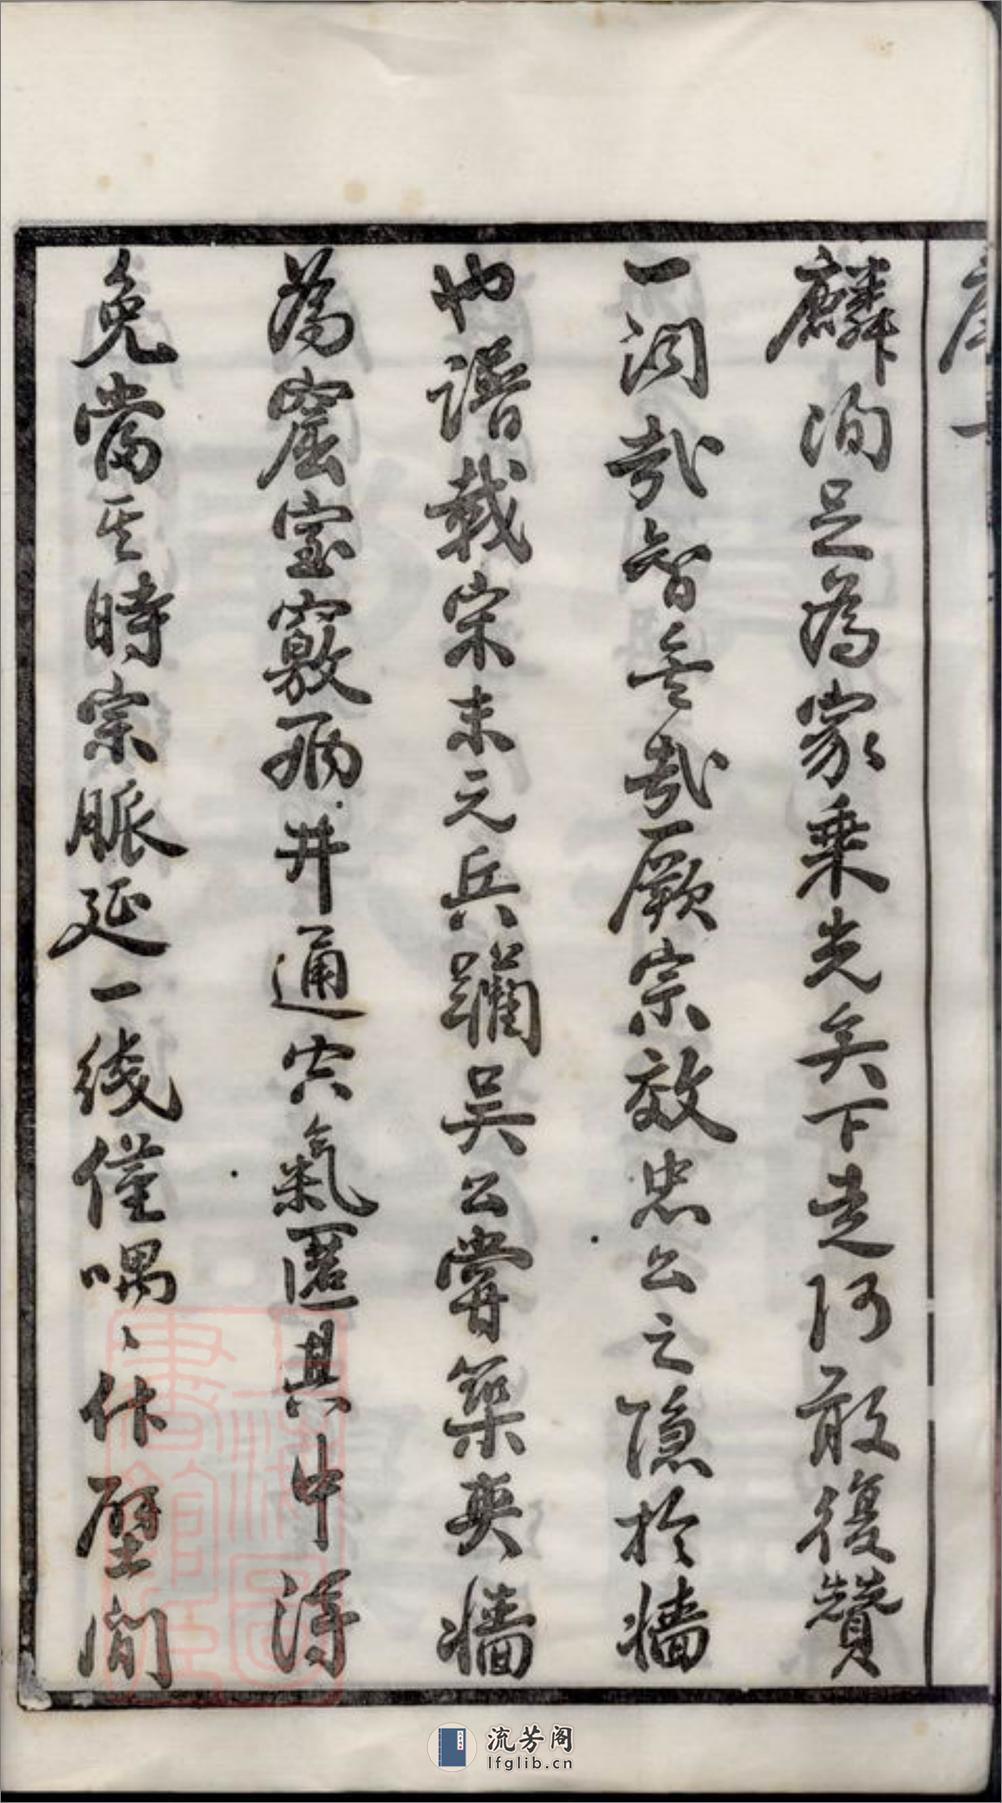 麟洵足為家乘光矣下走何敢復贊
一詞哉智矣哉厥宗效忠公之隱於牆
也譜載宋末元兵躪吳公嘗築夾牆
為窟室竅兩井通穴氣匿其中得
免當其時宗脈延一綫僅喁、伏壁間
流芳阁
lfglib.cn